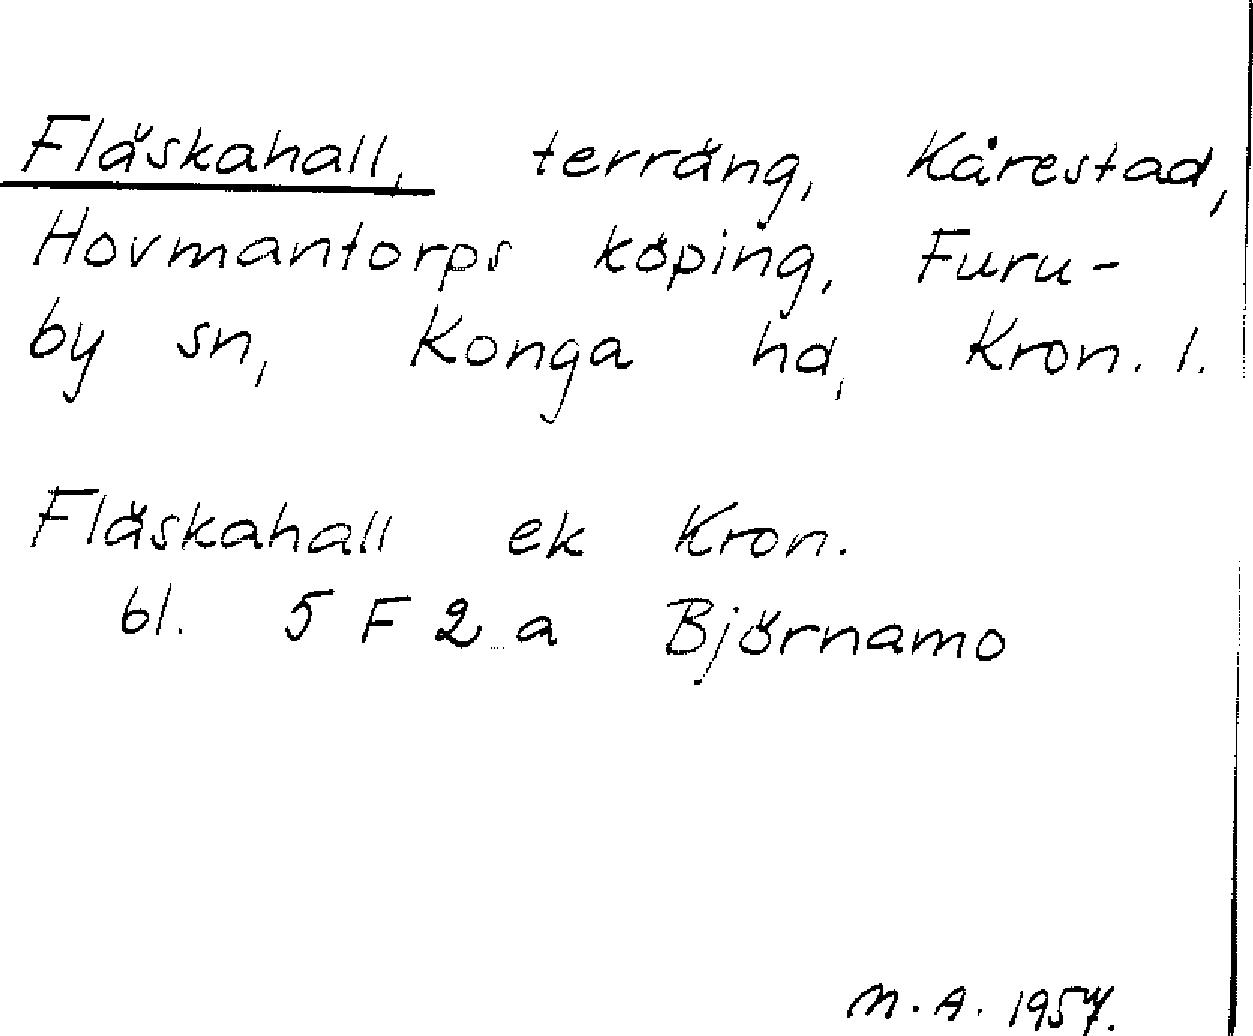 Fläskahall, terräng, Kårestad,
Hovmantorps köping, Furu-
by sn, Konga hd, Kron. l.
Fläskahall ek Kron.
bl. 5 F 2 a Björnamo
M. A. 1957.